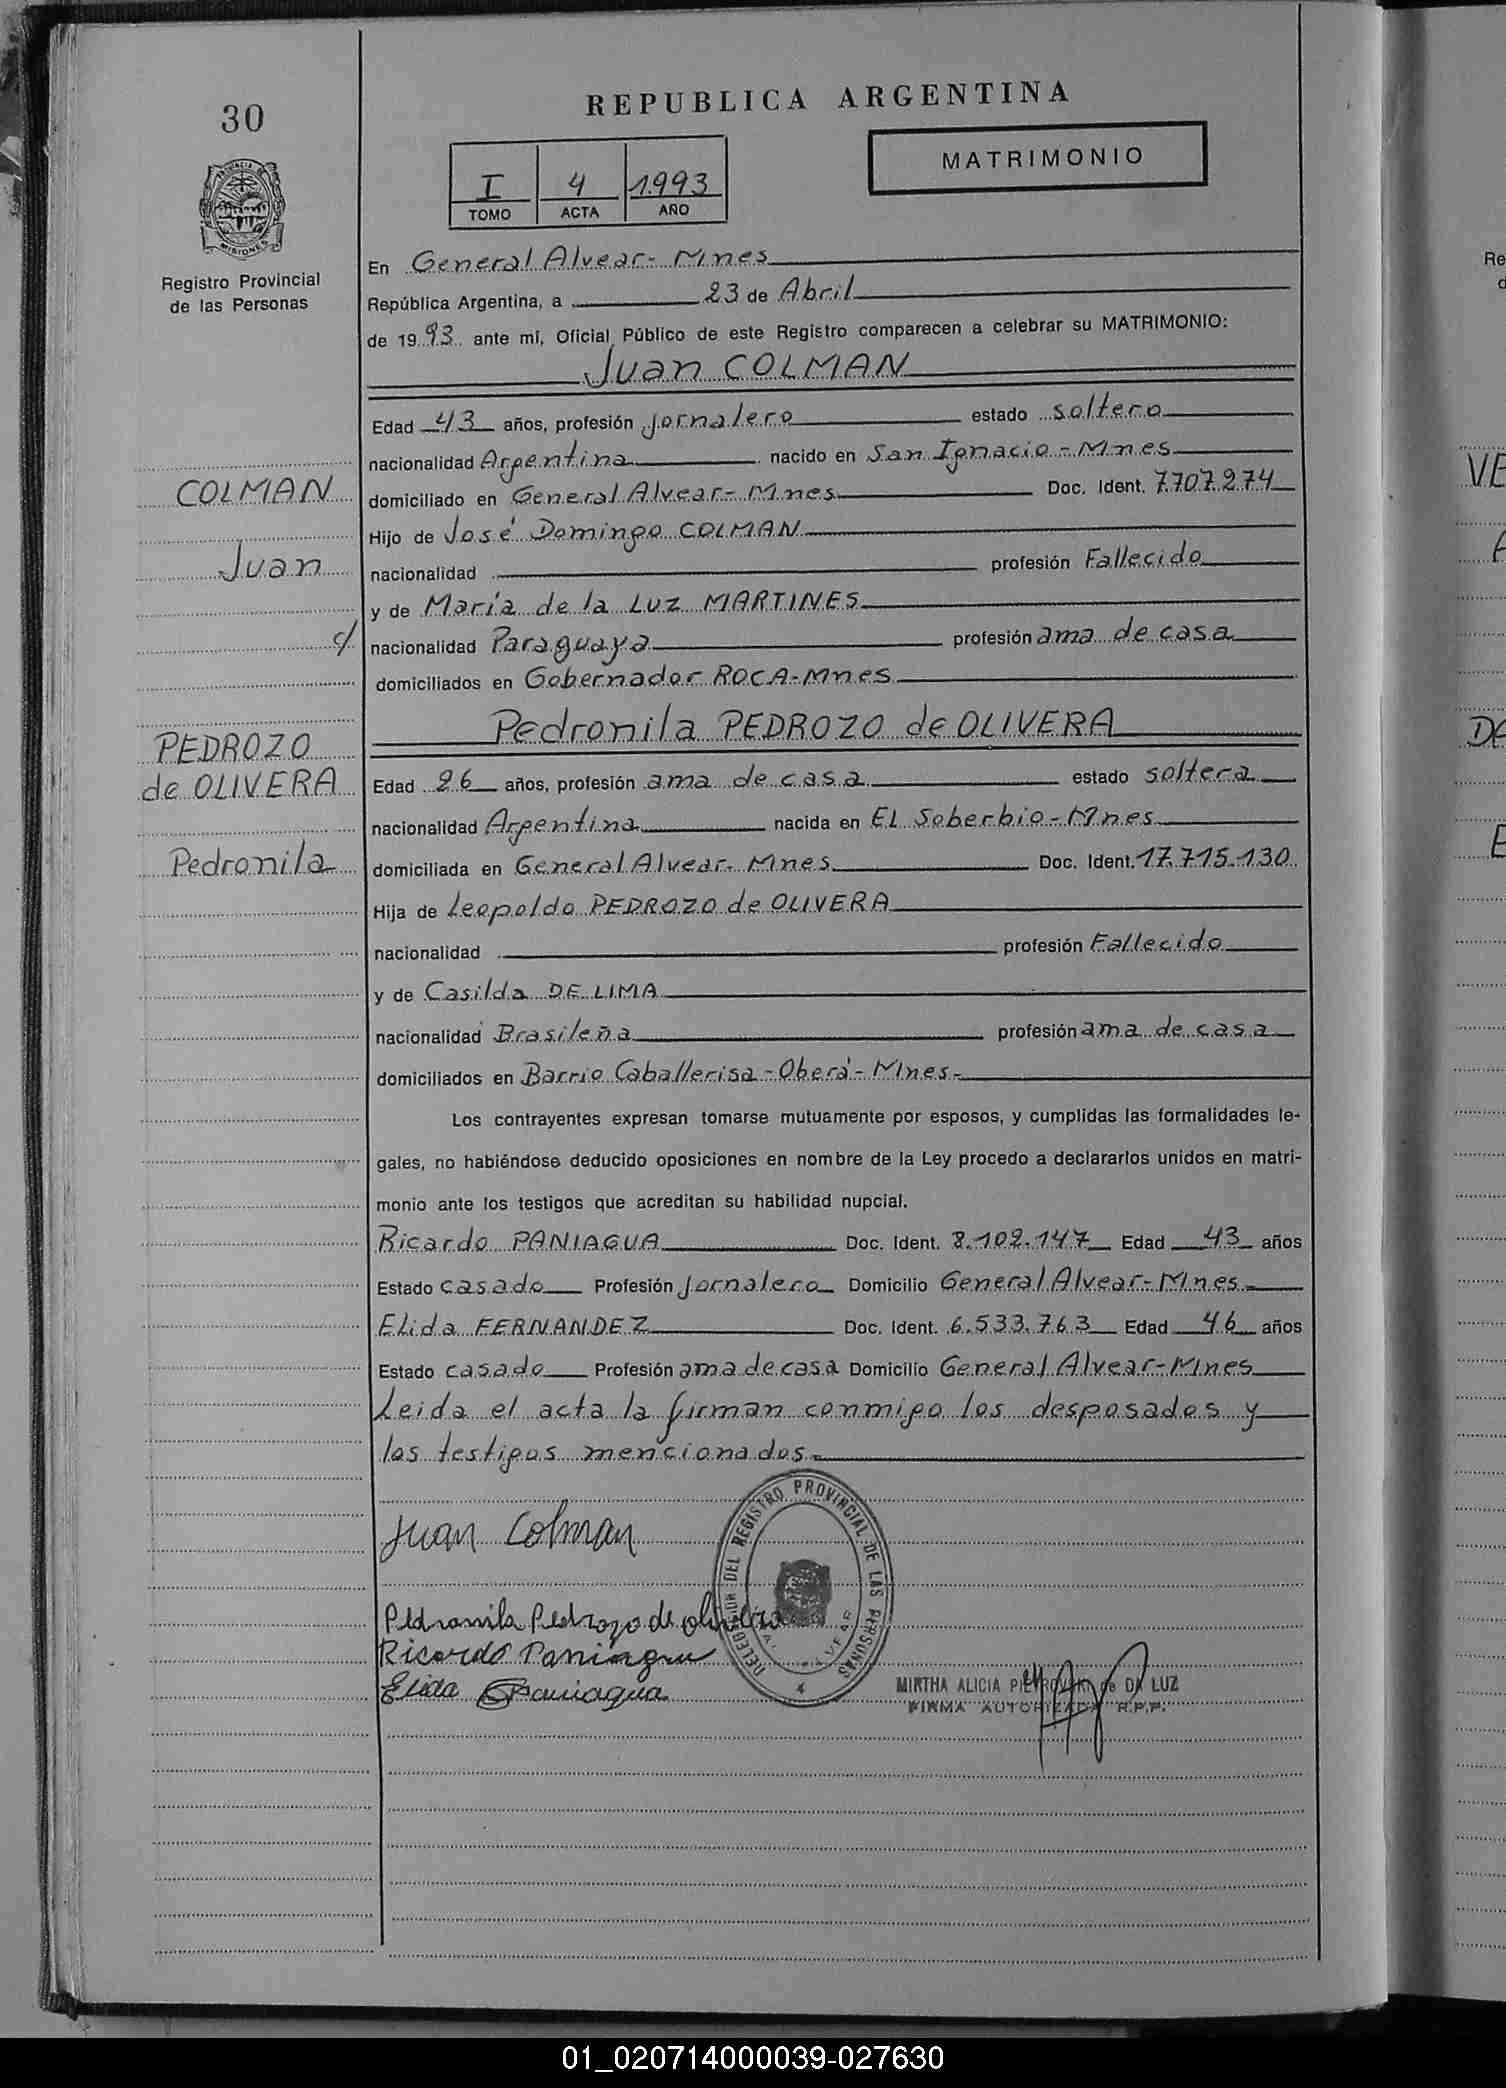 30
REPUBLICA ARGENTINA
MATRIMONIO
I 4 1993
TOMO ACTA AÑO
PROVINCIA DE
MISIONES
Registro Provincial
de las Personas
En General Alvear - Mnes
República Argentina, a 23 de Abril
de 19 93 ante mi, Oficial Público de este Registro comparecen a celebrar su MATRIMONIO:
Juan COLMAN
Edad 43 años, profesión jornalero estado soltero
nacionalidad Argentina nacido en San Ignacio - Mnes
COLMAN
domiciliado en General Alvear - Mnes Doc. Ident. 7.707.274
Hijo de José Domingo COLMAN
Juan
nacionalidad profesión Fallecido
y de María de la LUZ MARTINES
c/
nacionalidad Paraguaya profesión ama de casa
domiciliados en Gobernador ROCA - Mnes
Pedronila PEDROZO de OLIVERA
PEDROZO
de OLIVERA
Edad 26 años, profesión ama de casa estado soltera
nacionalidad Argentina nacida en EL Soberbio - Mnes
Pedronila
domiciliada en General Alvear - Mnes Doc. Ident. 17.715.130
Hija de Leopoldo PEDROZO de OLIVERA
nacionalidad profesión Fallecido
y de Casilda DE LIMA
nacionalidad Brasileña profesión ama de casa
domiciliados en Barrio Caballerisa - Oberá - Mnes -
Los contrayentes expresan tomarse mutuamente por esposos, y cumplidas las formalidades le-
gales, no habiéndose deducido oposiciones en nombre de la Ley procedo a declararlos unidos en matri-
monio ante los testigos que acreditan su habilidad nupcial.
Ricardo PANIAGUA Doc. Ident. 8.102.147 Edad 43 años
Estado casado Profesión Jornalero Domicilio General Alvear - Mnes
Elida FERNANDEZ Doc. Ident. 6.533.763 Edad 46 años
Estado casado Profesión ama de casa Domicilio General Alvear - Mnes
Leida el acta la firman conmigo los desposados y
los testigos mencionados
Juan Colman
Pedronila Pedrozo de olivera
Ricardo Paniagua
Elida Paniagua
DELEGACION DEL REGISTRO PROVINCIAL DE LAS PERSONAS
MIRTHA ALICIA PIETROVSKI de DA LUZ
FIRMA AUTORIZADA R.P.P.
Re
d
VE
DA
E
01_020714000039-027630